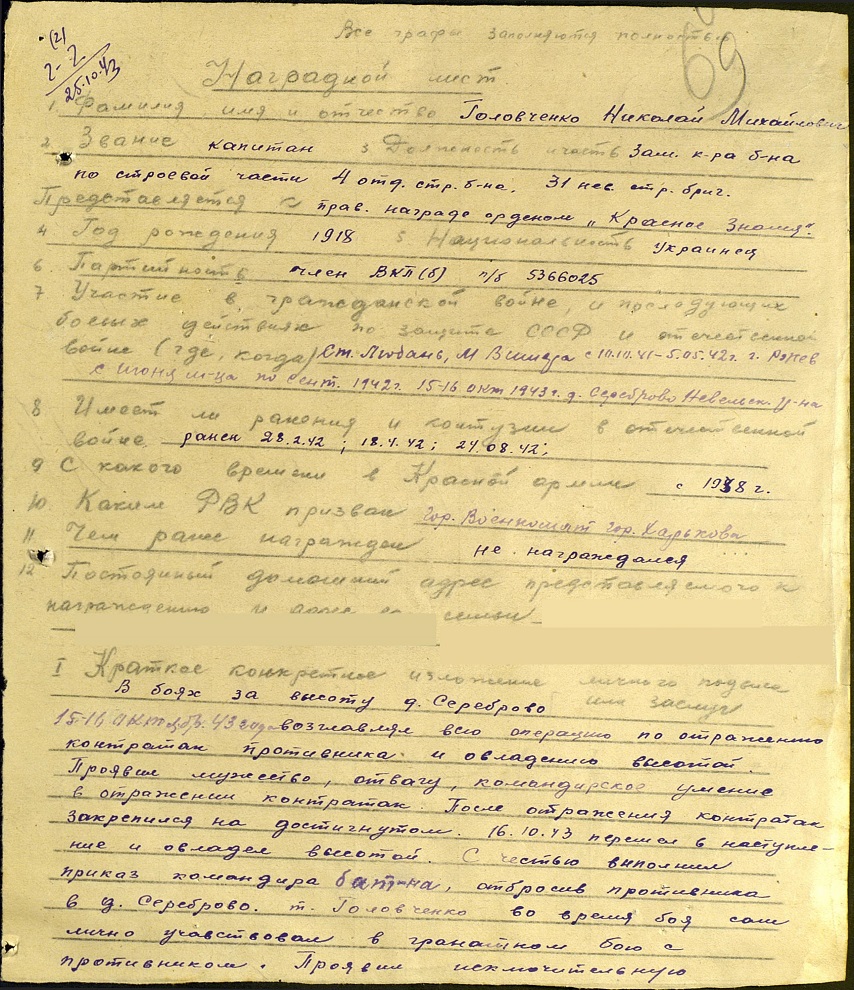 Все графы заполняются полностью
69
(2)
2-2
25.10.43
Наградной лист
1. Фамилия, имя и отчество Головченко Николай Михайлович
2. Звание капитан 3 Должность и часть Зам. к-ра б-на
по строевой части 4 отд. стр. б-на, 31 стр. бриг.
Представляется к прав. награде орденом „Красное Знамя".
4 Год рождения 1918 5 Национальность Украинец
6. Партийность член ВКП(б) п/б 5366025
7 Участие в гражданской войне, и последующих
боевых действиях по защите СССР и отечественной
войне (где, когда) Ст. Любань, М Вишера с 10.10.41-5.05.42г. г. Ржев
с июня м-ца по сент. 1942г. 15-16 окт 1943г. д. Сереброво Невельск. р-на
8 Имеет ли ранения и контузии в отечественной
войне ранен 28.2.42; 18.4.42; 24.08.42;
9 С какого времени в Красной армии с 1938 г.
10. Каким РВК призван Гор. Военкомат гор. Харькова
11 Чем ранее награжден не награждался
12 Постоянный домашний адрес представляемого к
награждению и адрес его семьи
I Краткое конкретное изложение личного подвига
или заслуг
В боях за высоту д. Сереброво
15-16 октября 43 года возглавлял всю операцию по отражению
контратак противника и овладению высотой.
Проявил мужество, отвагу, командирское умение
в отражении контратак. После отражения контратак
закрепился на достигнутом. 16.10.43 перешел в наступле-
ние и овладел высотой. С честью выполнил
приказ командира бат-на, отбросив противника
в д. Сереброво. т. Головченко во время боя сам
лично учавствовал в гранатном бою с
противником. Проявил исключительную